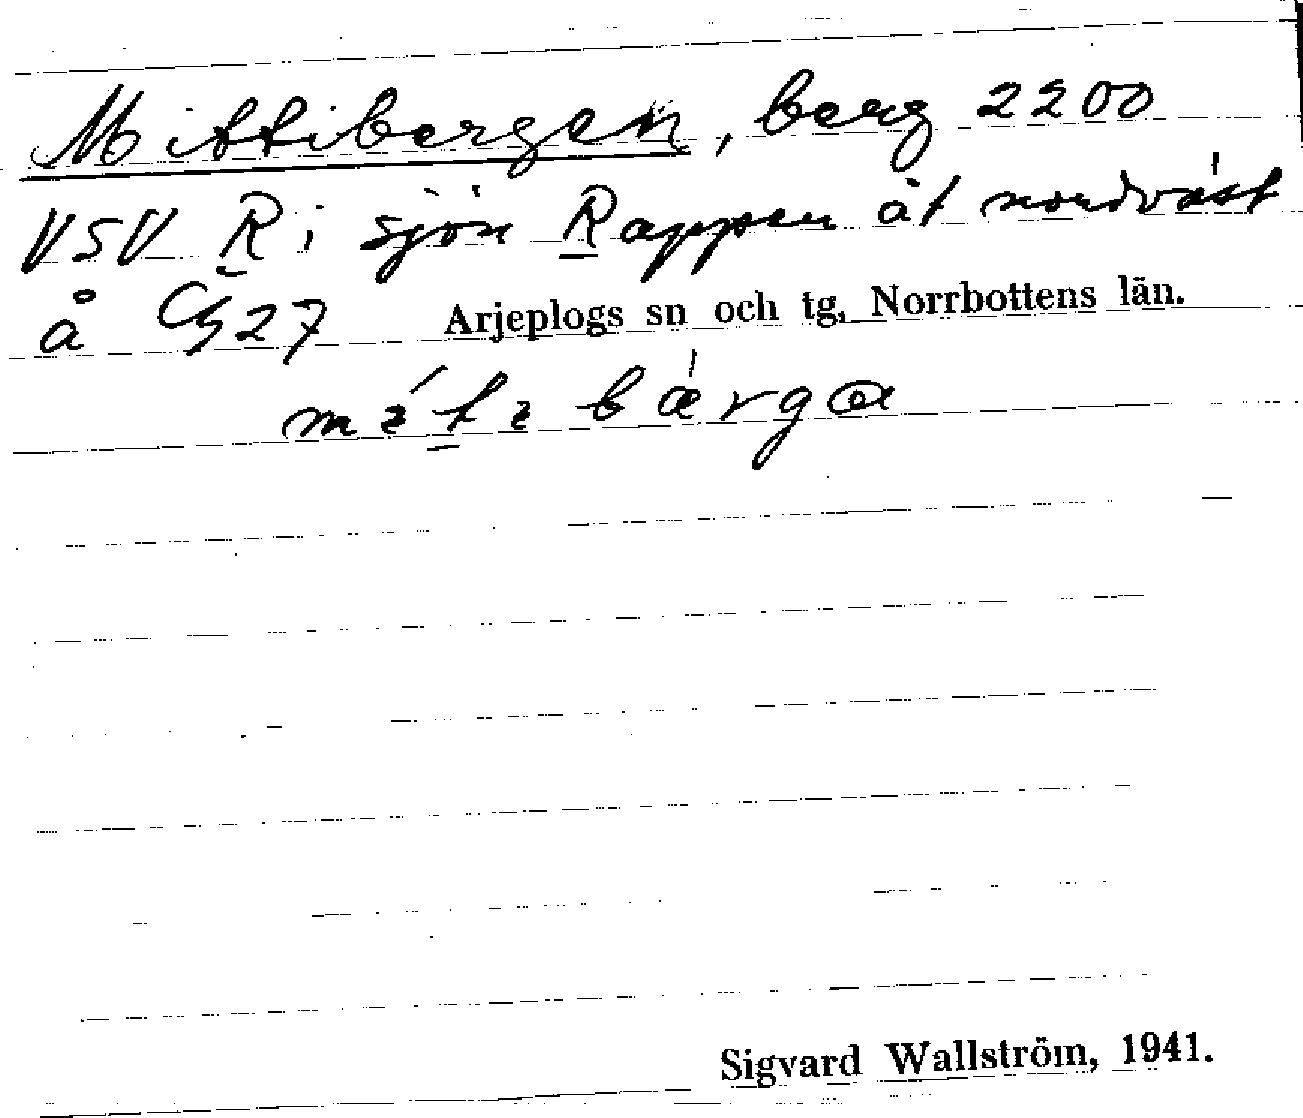 Mittibergen, berg 2200
VSV R i sjön Rappen åt nordväst
å G27 Arjeplogs sn och tg, Norrbottens län.
bärga
Sigvard Wallström, 1941.